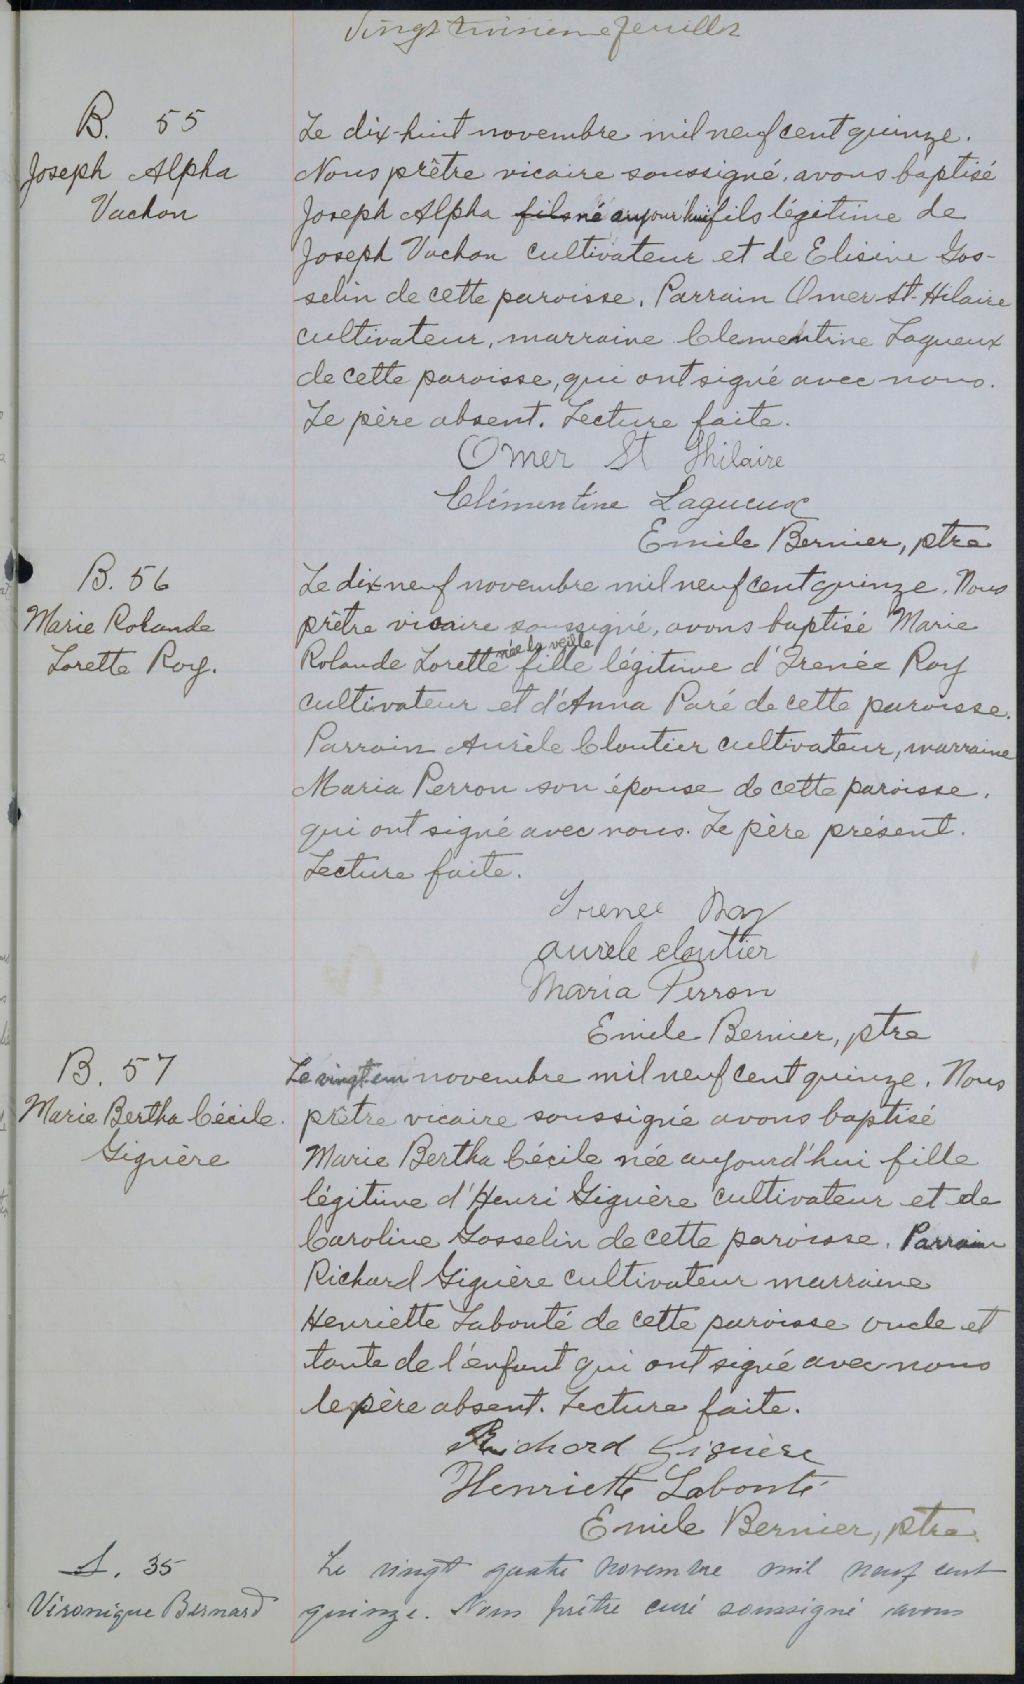 Vingt troisieme feuillet
B. 55
Joseph Alpha
Vachon
Le dix-huit novembre mil neuf cent quinze.
Nous prêtre vicaire soussigné, avons baptisé
Joseph Alpha fils né aujourd'hui fils légitime de
Joseph Vachon cultivateur et de Elisine Gos-
selin de cette paroisse. Parrain Omer St-Hilaire
cultivateur, marraine Clementine Lagueux
de cette paroisse, qui ont signé avec nous.
Le père absent. Lecture faite.
Omer St Hilaire
Clémentine Lagueux
Emile Bernier, ptre
B. 56
Marie Rolande
Lorette Roy.
Le dix neuf novembre mil neuf cent quinze. Nous
prêtre vicaire soussigné, avons baptisé Marie
Rolande Lorette née la veille fille légitime d'Irenée Roy
cultivateur et d'Anna Paré de cette paroisse.
Parrain Aurèle Cloutier cultivateur, marraine
Maria Perron son épouse de cette paroisse.
qui ont signé avec nous. Le père présent.
Lecture faite.
Irenee Roy
Aurele Cloutier
Maria Perron
Emile Bernier, ptre
B. 57
Marie Bertha Cécile
Giguère
Le vingt-un novembre mil neuf cent quinze. Nous
prêtre vicaire soussigné avons baptisé
Marie Bertha Cécile née aujourd'hui fille
légitime d'Henri Giguère cultivateur et de
Caroline Gosselin de cette paroisse. Parrain
Richard Giguère cultivateur marraine
Henriette Labonté de cette paroisse oncle et
tante de l'enfant qui ont signé avec nous
le père absent. Lecture faite.
Richard Giguère
Henriette Labonté
Emile Bernier, ptre
S. 35
Véronique Bernard
Le vingt quatre novembre mil neuf cent
quinze. Nous prêtre curé soussigné avons